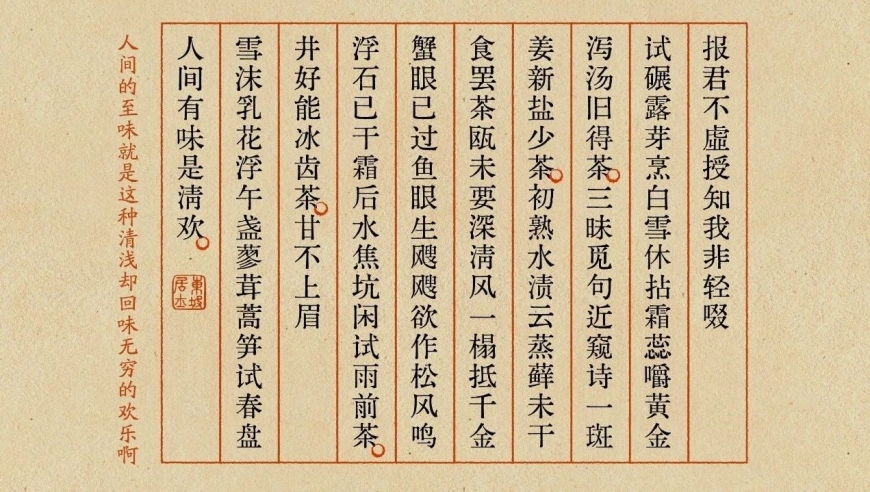 报君不虚授知我非轻啜
试碾露芽烹白雪休拈霜蕊嚼黄金
泻汤旧得茶三昧觅句近窥诗一斑
姜新盐少茶初熟水渍云蒸藓未干
食罢茶瓯未要深清风一榻抵千金
蟹眼已过鱼眼生飕飕欲作松风鸣
浮石已干霜后水焦坑闲试雨前茶
井好能冰齿茶甘不上眉
雪沫乳花浮午盏蓼茸蒿笋试春盘
人间有味是清欢
東坡居士
人间的至味就是这种清浅却回味无穷的欢乐啊